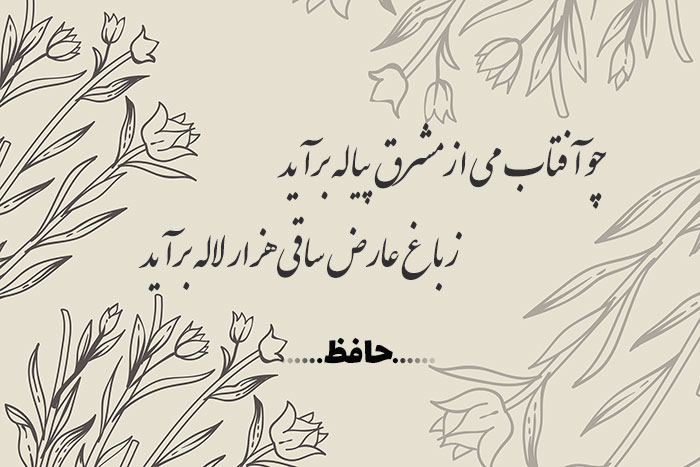 چو آفتاب می از مشرق پیاله برآید
ز باغ عارض ساقی هزار لاله برآید
......حافظ......